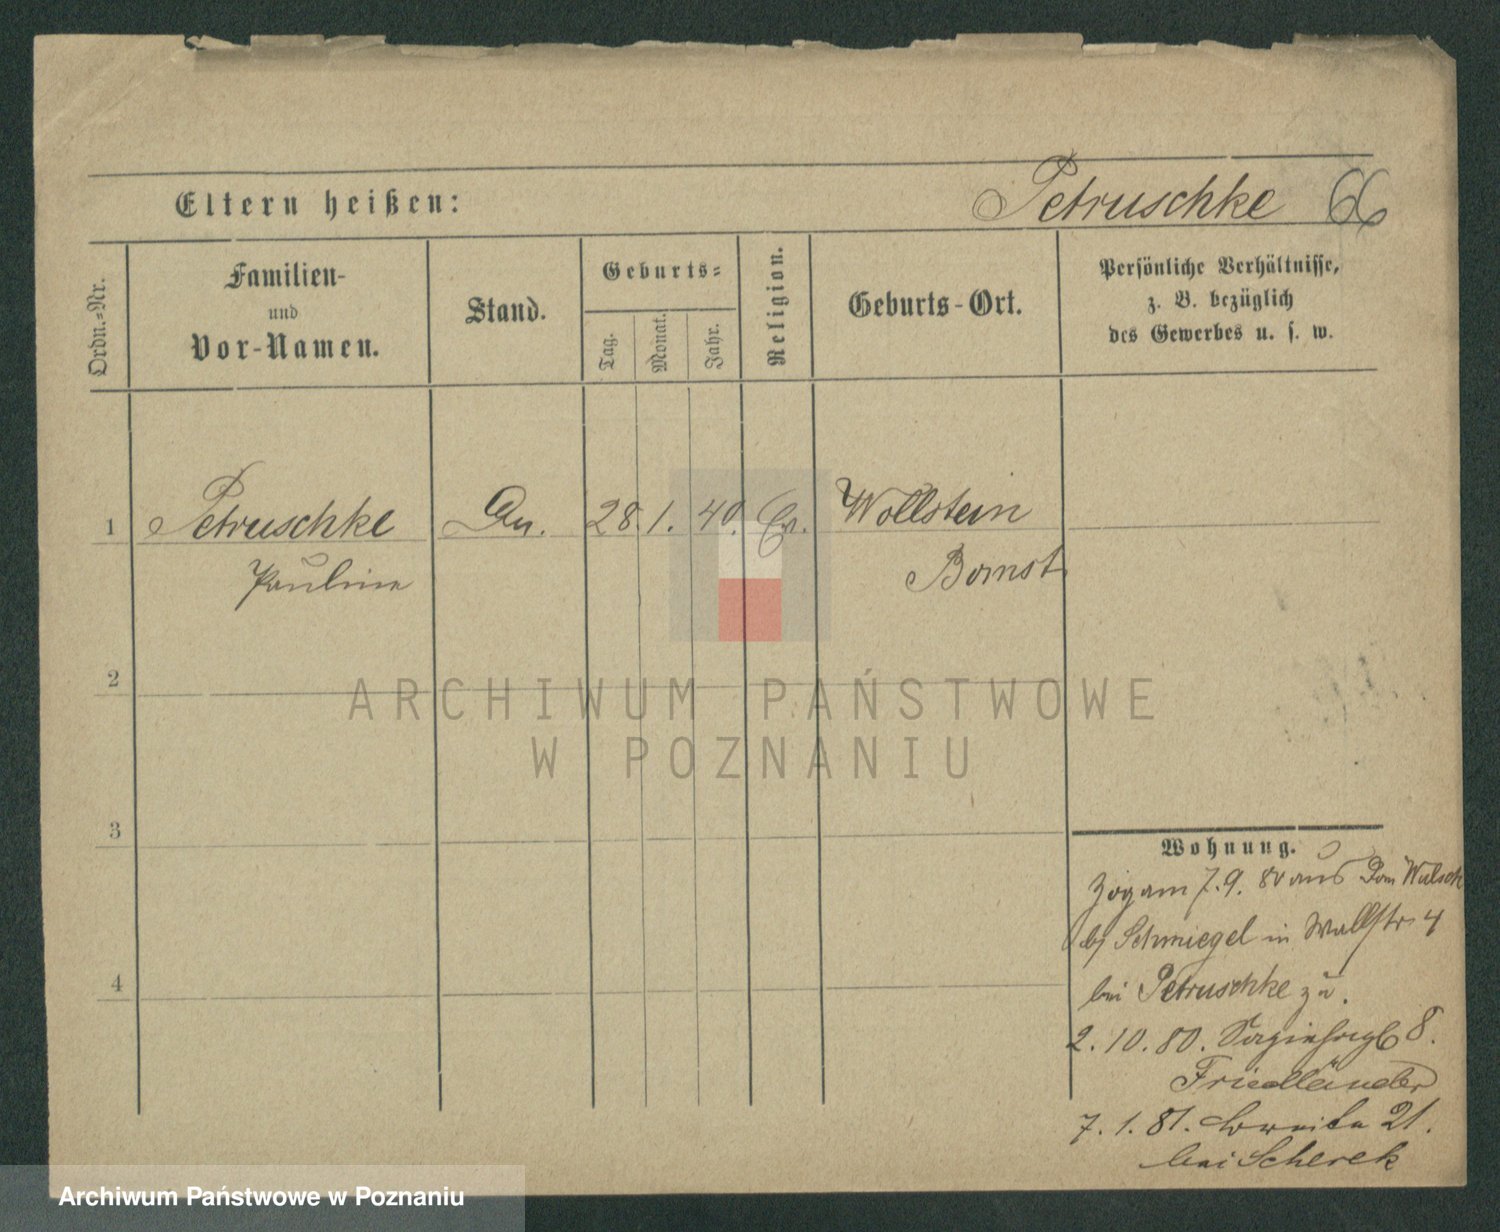 Eltern heißen:
Petruschke 66
Ordn.-Nr.
Familien-
und
Vor-Namen.
Stand.
Geburts-
Tag.
Monat.
Jahr.
Religion.
Geburts-Ort.
Persönliche Verhältnisse,
z. B. bezüglich
des Gewerbes u. s. w.
1 Petruschke 28. 1. 40. Ev. Wollstein
Pauline Bomst
2
3
4
Wohnung.
Zog am 7. 9. 80 aus Dom Wulsch
b/ Schmiegel in Wallstr 4
bei Petruschke zu.
2. 10. 80. 8.
Friedländer
7. 1. 81. Breite 21.
bei Scherek
ARCHIWUM PAŃSTWOWE
W POZNANIU
Archiwum Państwowe w Poznaniu